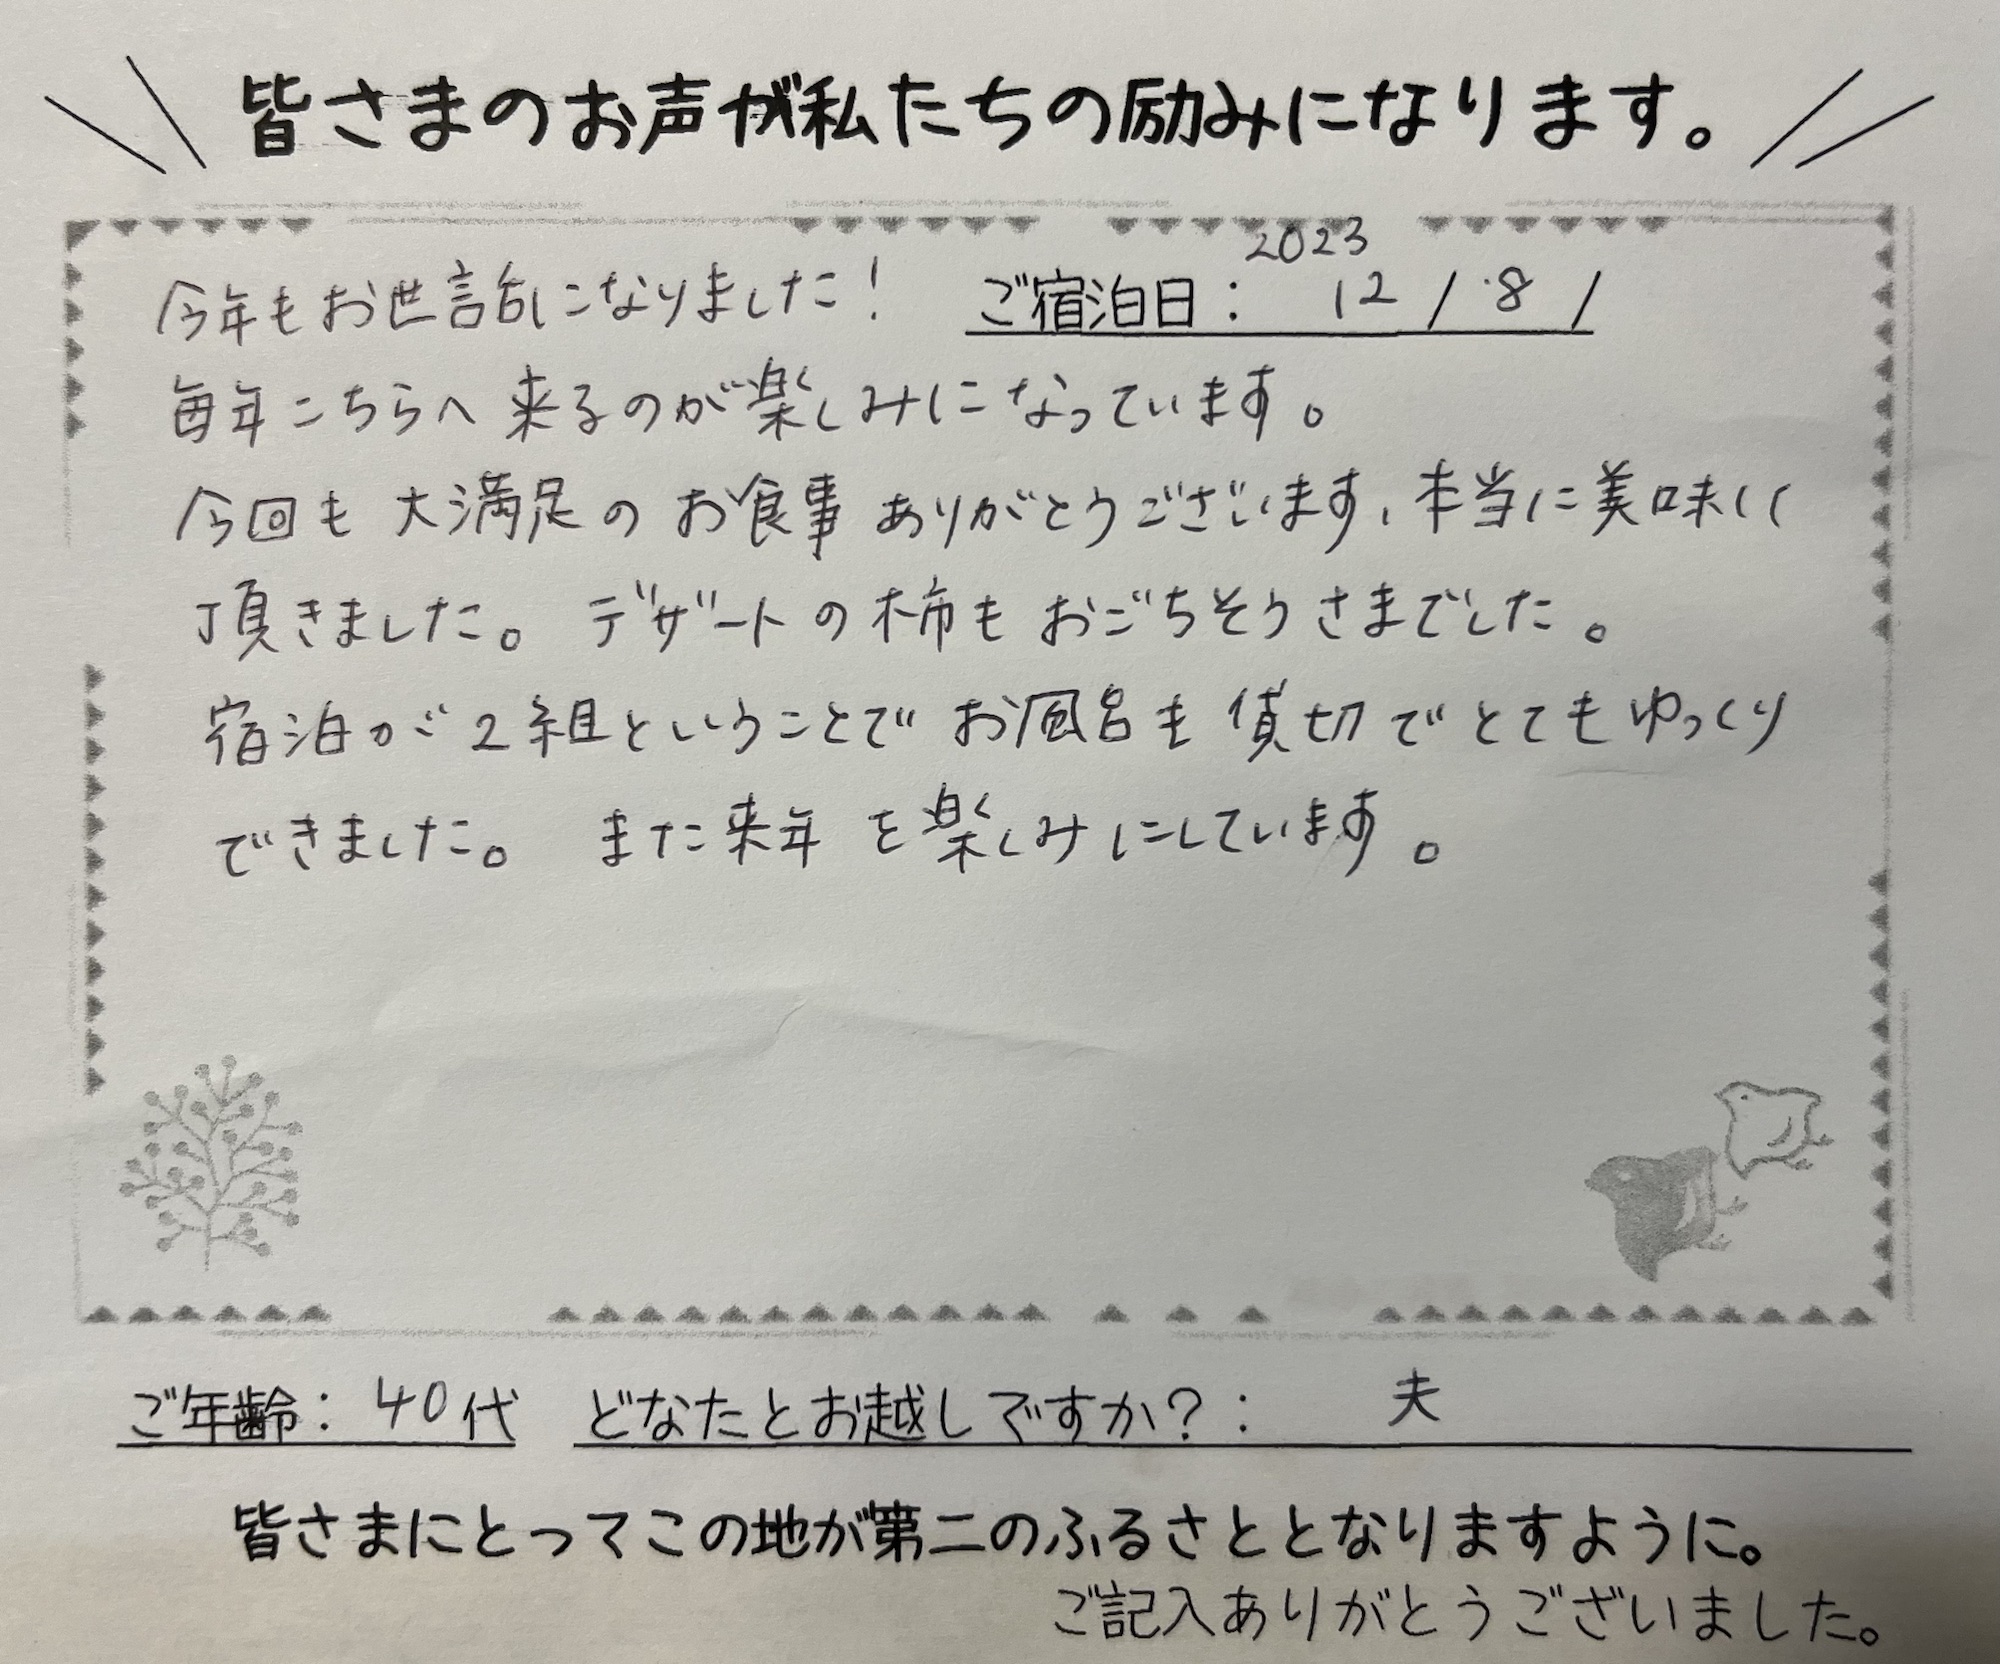 皆さまのお声が私たちの励みになります。
2023
今年もお世話になりました! ご宿泊日: 12/8/
毎年こちらへ来るのが楽しみになっています。
今回も大満足のお食事ありがとうございます、本当に美味しく
頂きました。デザートの柿もおごちそうさまでした。
宿泊が2組ということでお風呂も貸切でとてもゆっくり
できました。また来年を楽しみにしています。
ご年齢: 40代 どなたとお越しですか?: 夫
皆さまにとってこの地が第二のふるさととなりますように。
ご記入ありがとうございました。